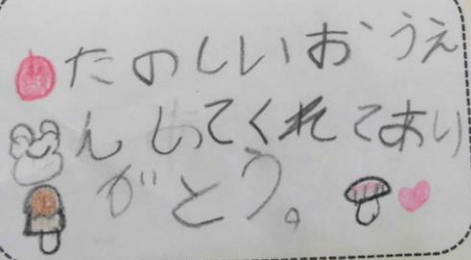 たのしいおうえ
んしてくれてあり
がとう。